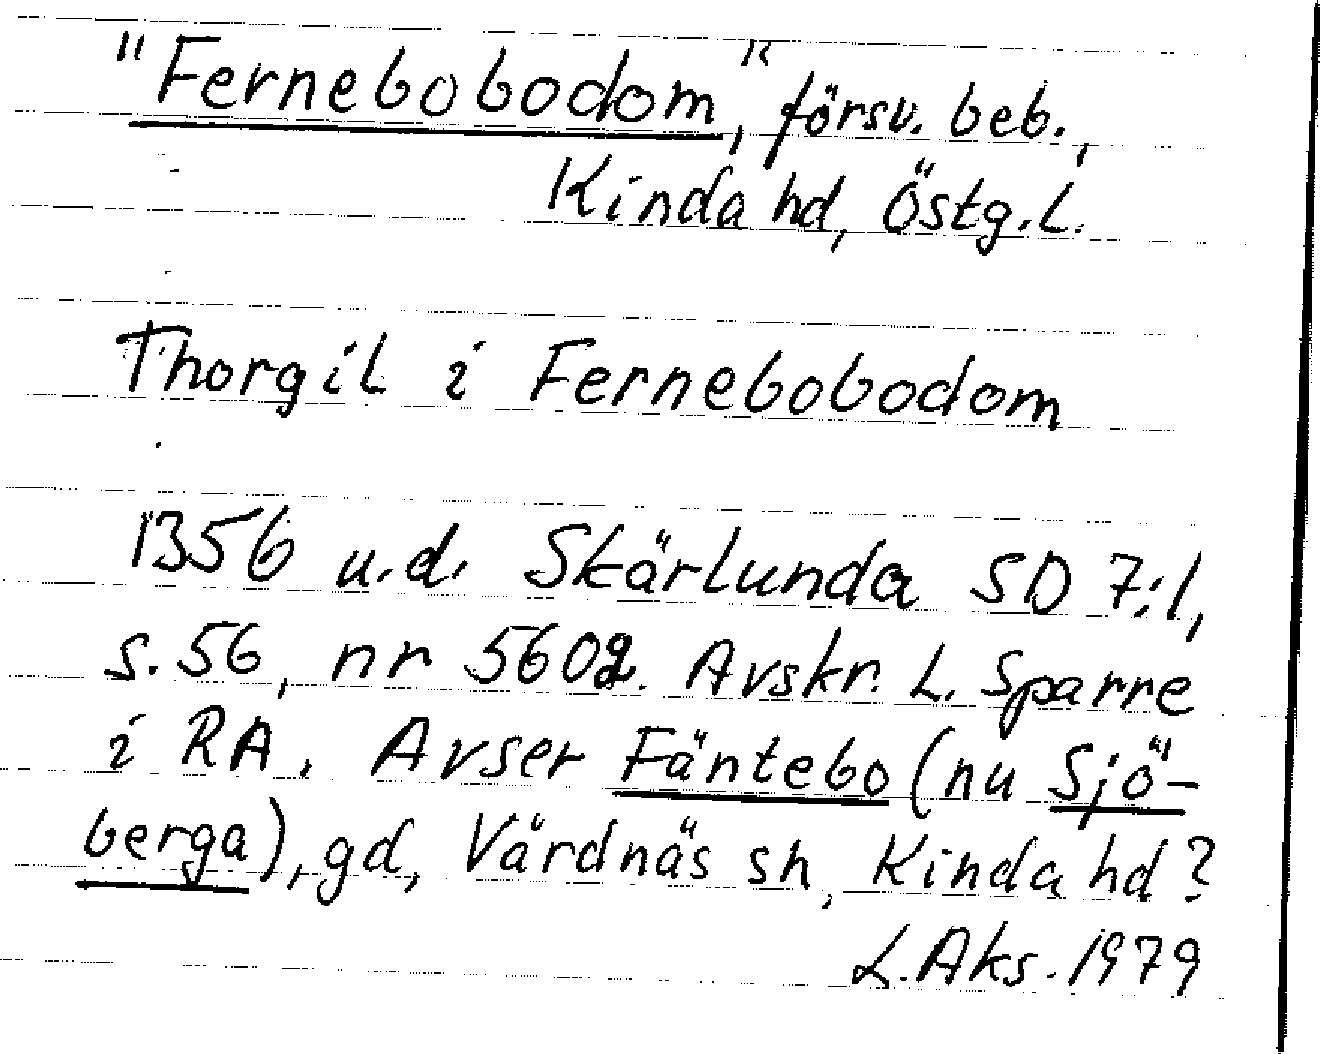 "Fernebobodom", försv. beb.,
Kinda hd, Östg.l.
Thorgil i Fernebobodom
1356 u.d. Skärlunda SD 7:1,
s. 56, nr 5602. Avskr. L. Sparre
i RA. Avser Fäntebo (nu Sjö-
berga), gd, Vårdnäs sn, Kinda hd?
L. Aks. 1979